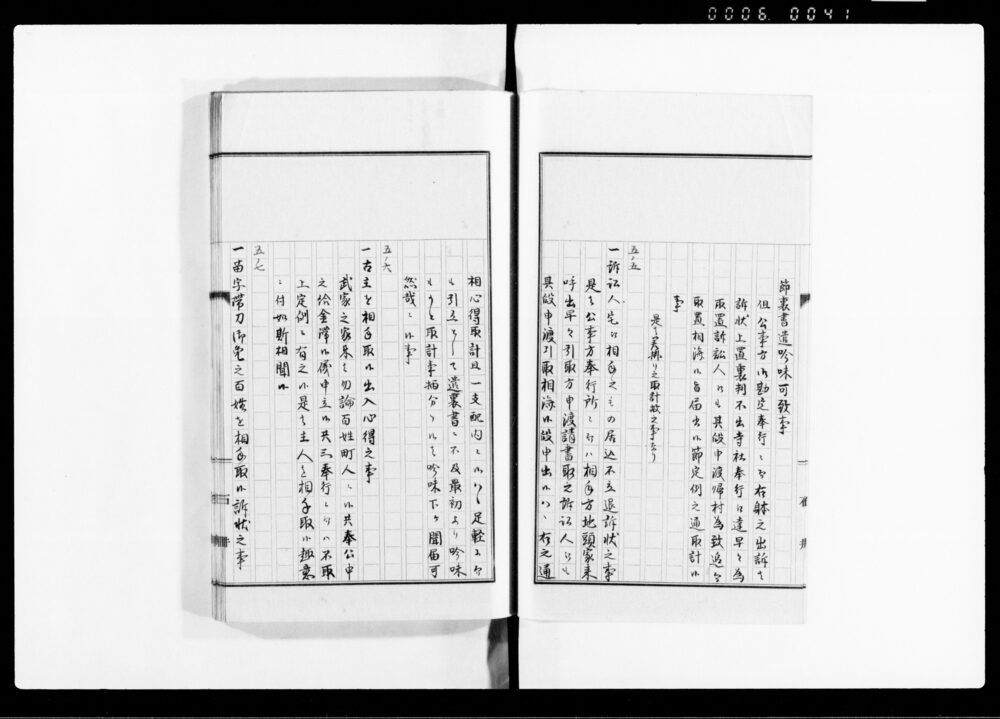 0006 0041
節裏書遣吟味可致事
但公事方御勘定奉行ニ而右躰之出訴者
訴状上置裏判不出寺社奉行江達早々為
取置訴訟人江も其段申渡帰村為致追而
取置相済候旨届出候節定例之通取計候
事
是者実揃り之取計故之事なり
五ノ五
一訴訟人宅江相手之もの居込不立退訴状之事
是者公事方奉行所ニ而ハ相手方地頭家来
呼出早々引取方申渡請書取之訴訟人江も
其段申渡引取相済候段申出候ハヽ右之通
相心得取計且一支配内ニ候ハヽ足軽ニ而
も引立さして遣裏書ニ不及最初より吟味
ものと取計事柄分り候ハヽ吟味下ヶ聞届可
然哉ニ候事
五ノ六
一古主を相手取候出入心得之事
武家之家来者勿論百姓町人ニ候共奉公中
之給金滞候儀申立候共三奉行ニ而ハ不取
上定例ニ有之候是者主人を相手取候趣意
ニ付如斯相聞候
五ノ七
一苗字帯刀御免之百姓を相手取候訴状之事